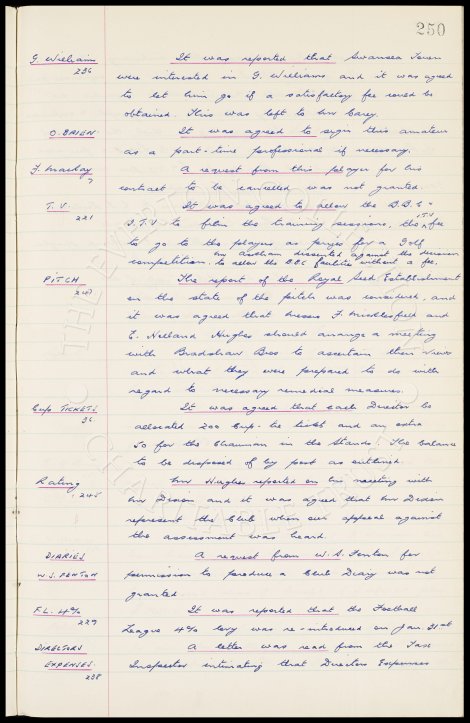 250
G. Williams It was reported that Swansea Town
236 were interested in G. Williams and it was agreed
to let him go if a satisfactory fee could be
obtained. This was left to Mr Carey.
O. BRIEN It was agreed to sign this amateur
as a part-time professional if necessary.
F. Mackay A request from this player for his
contract to be cancelled was not granted.
T.V. It was agreed to allow the B.B.C. &
221 I.T.V to film the training sessions, the I.T.V fee
to go to the players as prizes for a Golf
competition. Mr dissented against the decision
to allow the B.B.C facilities without a fee.
PITCH The report of the Royal Seed Establishment
249 on the state of the pitch was considered, and
it was agreed that Messrs F. Micklesfield and
E. Holland Hughes should arrange a meeting
with Bradshaw Bros to ascertain their views
and what they were prepared to do with
regard to necessary remedial measures.
Cup TICKETS It was agreed that each Director be
allocated 200 Cup-tie tickets and an extra
50 for the Chairman in the Stands. The balance
to be disposed of by post as outlined.
Rating Mr Hughes reported on his meeting with
245 Mr Dixon and it was agreed that Mr Dixon
represent the Club when our appeal against
the assessment was heard.
DIARIES A request from W.S. Fenton for
W.S. FENTON permission to produce a Club Diary was not
granted
F.L. 4% It was reported that the Football
229 League 4% levy was re-introduced on Jan. 21st
DIRECTORS A letter was read from the Tax
EXPENSES Inspector intimating that Directors Expenses
238